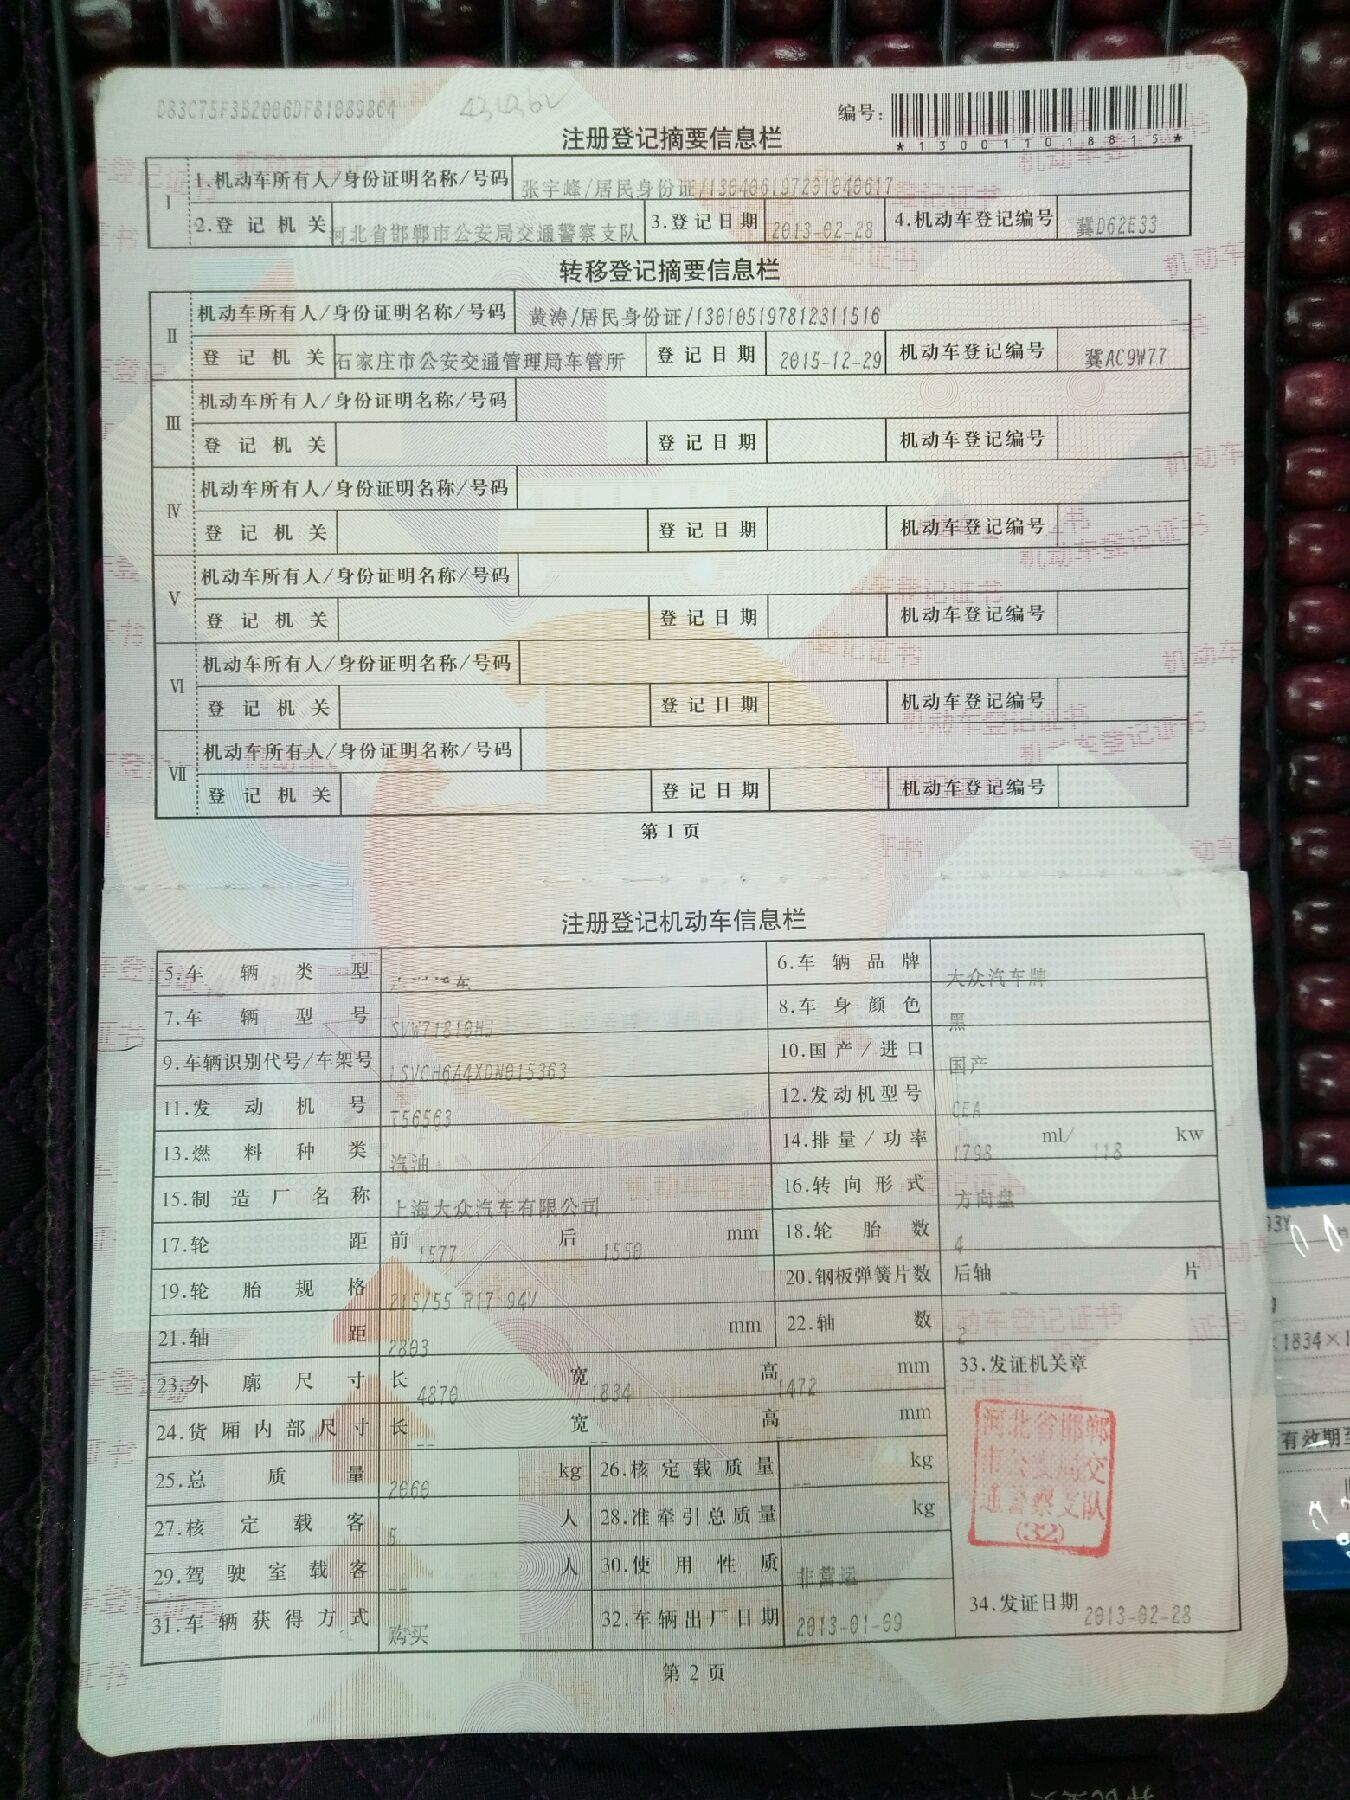 D83C75F3B2006DF81089864
编号:
*130011018815*
注册登记摘要信息栏
Ⅰ 1.机动车所有人/身份证明名称/号码 张宇峰/居民身份证/
2.登记机关 河北省邯郸市公安局交通警察支队 3.登记日期 2013-02-28 4.机动车登记编号 冀D62E33
转移登记摘要信息栏
Ⅱ 机动车所有人/身份证明名称/号码 黄涛/居民身份证/130105197812311516
登记机关 石家庄市公安交通管理局车管所 登记日期 2015-12-29 机动车登记编号 冀AC9W77
Ⅲ 机动车所有人/身份证明名称/号码
登记机关 登记日期 机动车登记编号
Ⅳ 机动车所有人/身份证明名称/号码
登记机关 登记日期 机动车登记编号
Ⅴ 机动车所有人/身份证明名称/号码
登记机关 登记日期 机动车登记编号
Ⅵ 机动车所有人/身份证明名称/号码
登记机关 登记日期 机动车登记编号
Ⅶ 机动车所有人/身份证明名称/号码
登记机关 登记日期 机动车登记编号
第1页
注册登记机动车信息栏
5.车辆类型 6.车辆品牌 大众汽车牌
7.车辆型号 SVW71818HJ 8.车身颜色 黑
9.车辆识别代号/车架号 LSVCH6A4XDN015363 10.国产/进口 国产
11.发动机号 T56563 12.发动机型号 CEA
13.燃料种类 汽油 14.排量/功率 1798 ml/ 118 kw
15.制造厂名称 上海大众汽车有限公司 16.转向形式 方向盘
17.轮距 前 1577 后 1550 mm 18.轮胎数 4
19.轮胎规格 215/55 R17 94V 20.钢板弹簧片数 后轴 -- 片
21.轴距 2803 mm 22.轴数 2
23.外廓尺寸 长 4870 宽 1834 高 1472 mm 33.发证机关章
24.货厢内部尺寸 长 -- 宽 -- 高 -- mm
25.总质量 2060 kg 26.核定载质量 -- kg
河北省邯郸
市公安局交
通警察支队
(32)
27.核定载客 5 人 28.准牵引总质量 -- kg
29.驾驶室载客 -- 人 30.使用性质 非营运
31.车辆获得方式 购买 32.车辆出厂日期 2013-01-09 34.发证日期 2013-02-28
第2页
93Y
×1834×1
有效期至